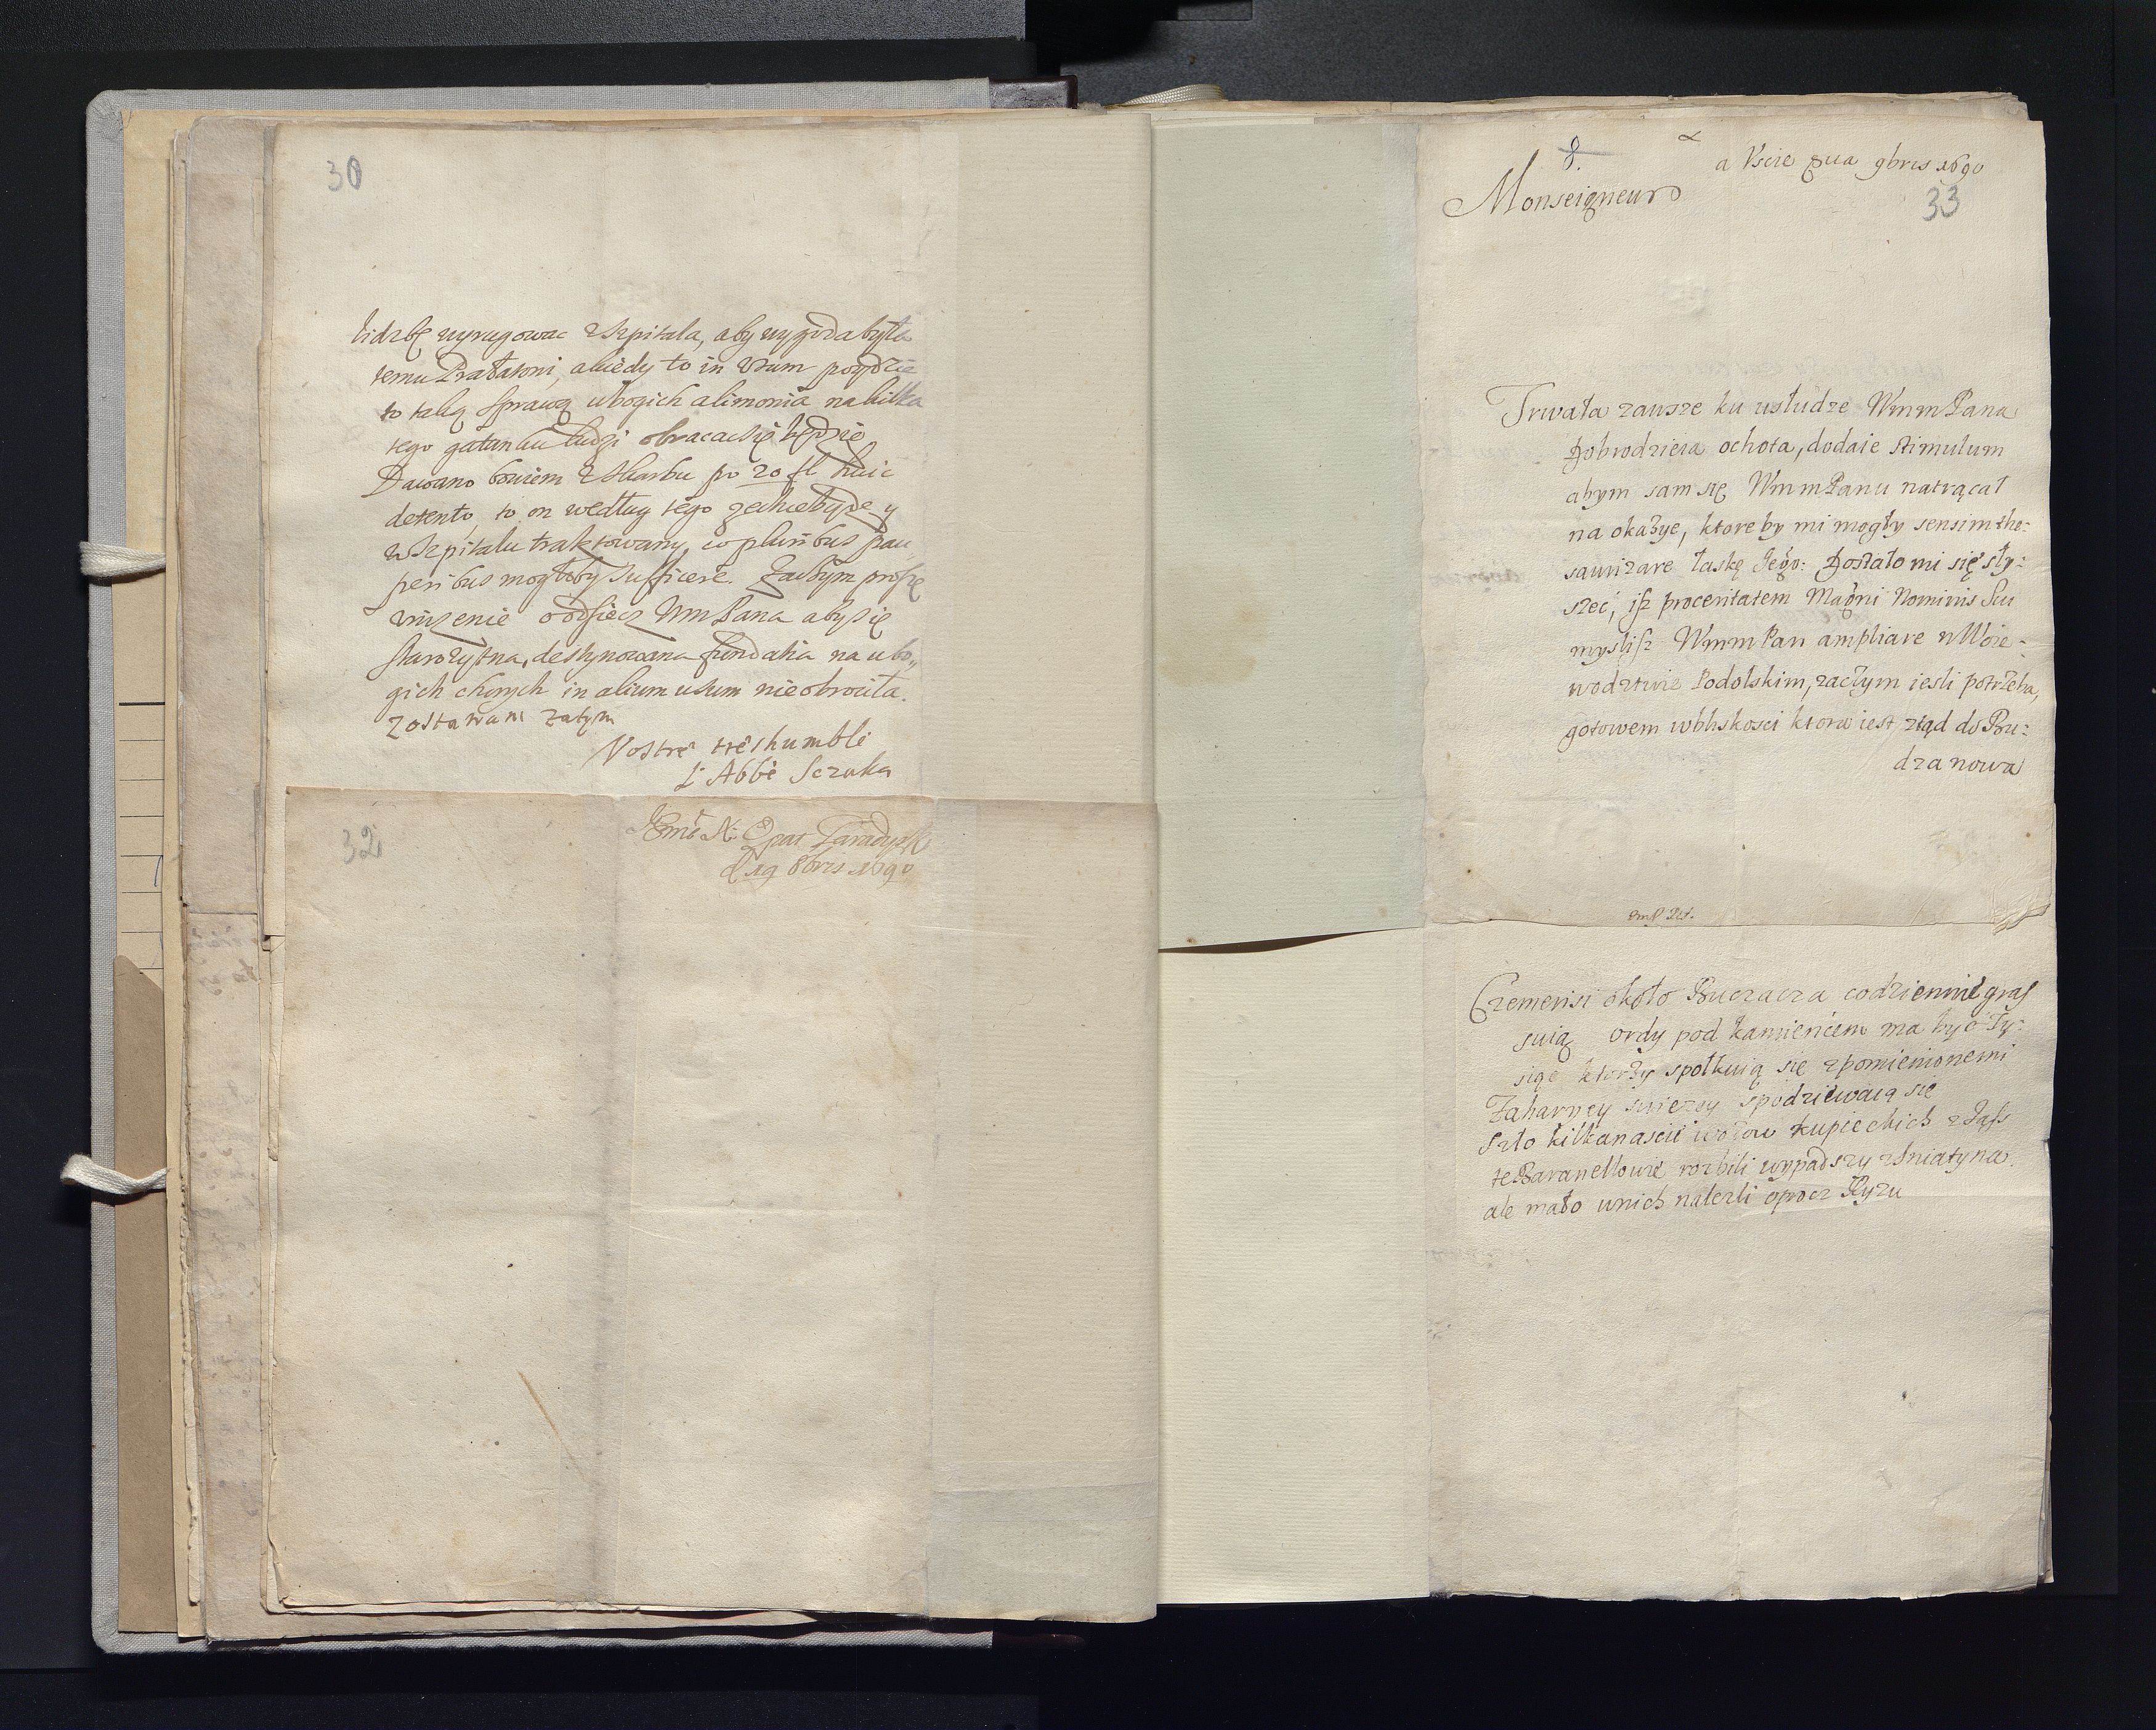 30
ludzi wyrugowac z Szpitala, aby wygoda była
temu Prałatowi, a kiedy to in usum poydzie
to taką sprawą ubogich alimonia na kilka
tego gatunku ludzi obracac się będzie
Dawano bowiem z skarbu po 20 fl huic
detento, to on według tego
w Szpitalu traktowany, co pluribus pau
peribus mogłoby sufficere. Zaczym proszę
uniżenie o odsiecz WmPana aby się
starożytna, destynowana fundatia na ubo„
gich chorych in alium usum nie obrociła.
Zostawam zatym
Vostre tres humble
L'Abbé Sczuka
32
JEmć X. Opat Paradyzki
d 19 8bris 1690
8.
a Uscie 9bris 1690
Monseigneur
33
Trwała zawsze ku usłudze WmmPana
Dobrodzieia ochota, dodaie stimulum
abym sam się WmmPanu natrącał
na okazye, ktore by mi mogły sensim the:
saurizare łaskę Jego: Dostało mi się sły:
szeć, isz proceritatem Magni Nominis Sui
myslisz WmmPan ampliare w Woie:
wodztwie Podolskim, zaczym iesli potrzeba,
gotowem w bliskosci ktora iest ztąd do Bu:
dzanowa
Czemerisi około Buczacza codziennie gras
suią ordy pod Kamieńcem ma być Ty:
siąc ktorzy spotkuią się z pomienionemi
Zaharpey swiezey spodziewaią się
Szło kilkanascie wozow kupieckich z Jass
te Baranellowie rozbili wypadszy z Sniatyna.
ale mało u nich nalezli oprocz Ryzu